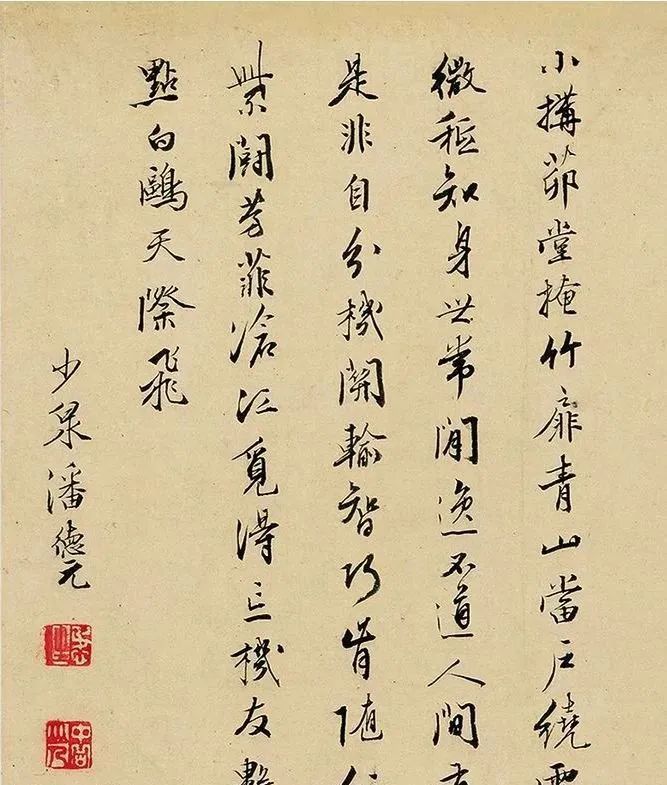 小搆茆堂掩竹扉青山當户繞
微秪知身世常閒逸不道人間有
是非自分機關輸智巧肯随
紫鬪芳菲滄江覓得忘機友數
點白鷗天際飛
少泉潘德元